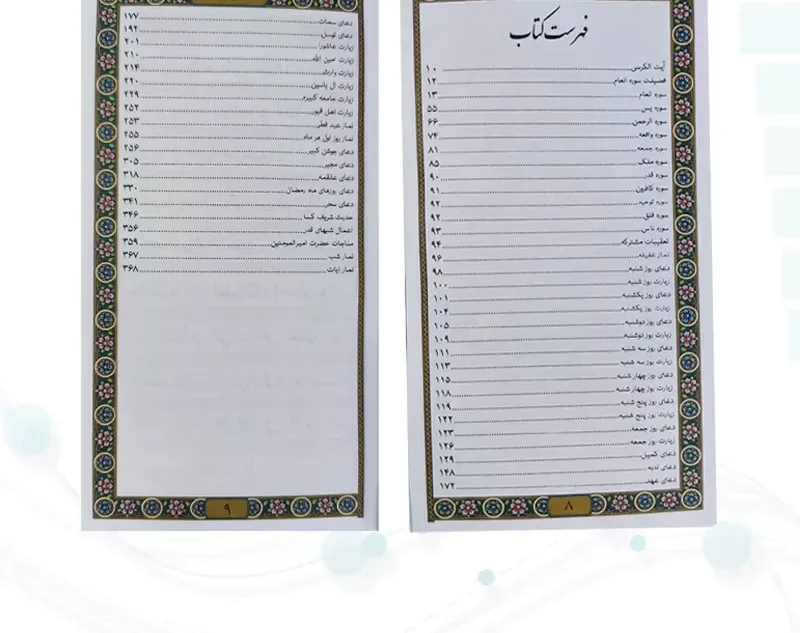 فهرست کتاب
آیت الکرسی ۱۰
فضیلت سوره انعام ۱۲
سوره انعام ۱۳
سوره یس ۵۵
سوره الرحمن ۶۶
سوره واقعه ۷۴
سوره جمعه ۸۱
سوره ملک ۸۵
سوره قدر ۹۰
سوره کافرون ۹۱
سوره توحید ۹۲
سوره فلق ۹۲
سوره ناس ۹۳
تعقیبات مشترکه ۹۴
نماز غفیله ۹۶
دعای روز شنبه ۹۸
زیارت روز شنبه ۱۰۰
دعای روز یکشنبه ۱۰۱
زیارت روز یکشنبه ۱۰۴
دعای روز دوشنبه ۱۰۵
زیارت روز دوشنبه ۱۰۹
دعای روز سه شنبه ۱۱۱
زیارت روز سه شنبه ۱۱۳
دعای روز چهار شنبه ۱۱۵
زیارت روز چهار شنبه ۱۱۸
دعای روز پنج شنبه ۱۱۹
زیارت روز پنج شنبه ۱۲۲
دعای روز جمعه ۱۲۳
زیارت روز جمعه ۱۲۶
دعای کمیل ۱۲۹
دعای ندبه ۱۴۸
دعای عهد ۱۷۲
۸
دعای سمات ۱۷۷
دعای توسل ۱۹۲
زیارت عاشورا ۲۰۱
زیارت امین الله ۲۱۰
زیارت وارث ۲۱۴
زیارت آل یاسین ۲۲۰
زیارت جامعه کبیره ۲۲۹
زیارت اهل قبور ۲۵۲
نماز عید فطر ۲۵۳
نماز روز اول هر ماه ۲۵۵
دعای جوشن کبیر ۲۵۶
دعای مجیر ۳۰۵
دعای علقمه ۳۱۸
دعای روزهای ماه رمضان ۳۳۰
دعای سحر ۳۴۱
حدیث شریف کسا ۳۴۶
اعمال شبهای قدر ۳۵۶
مناجات حضرت امیرالمومنین ۳۵۹
نماز شب ۳۶۷
نماز آیات ۳۶۸
۹